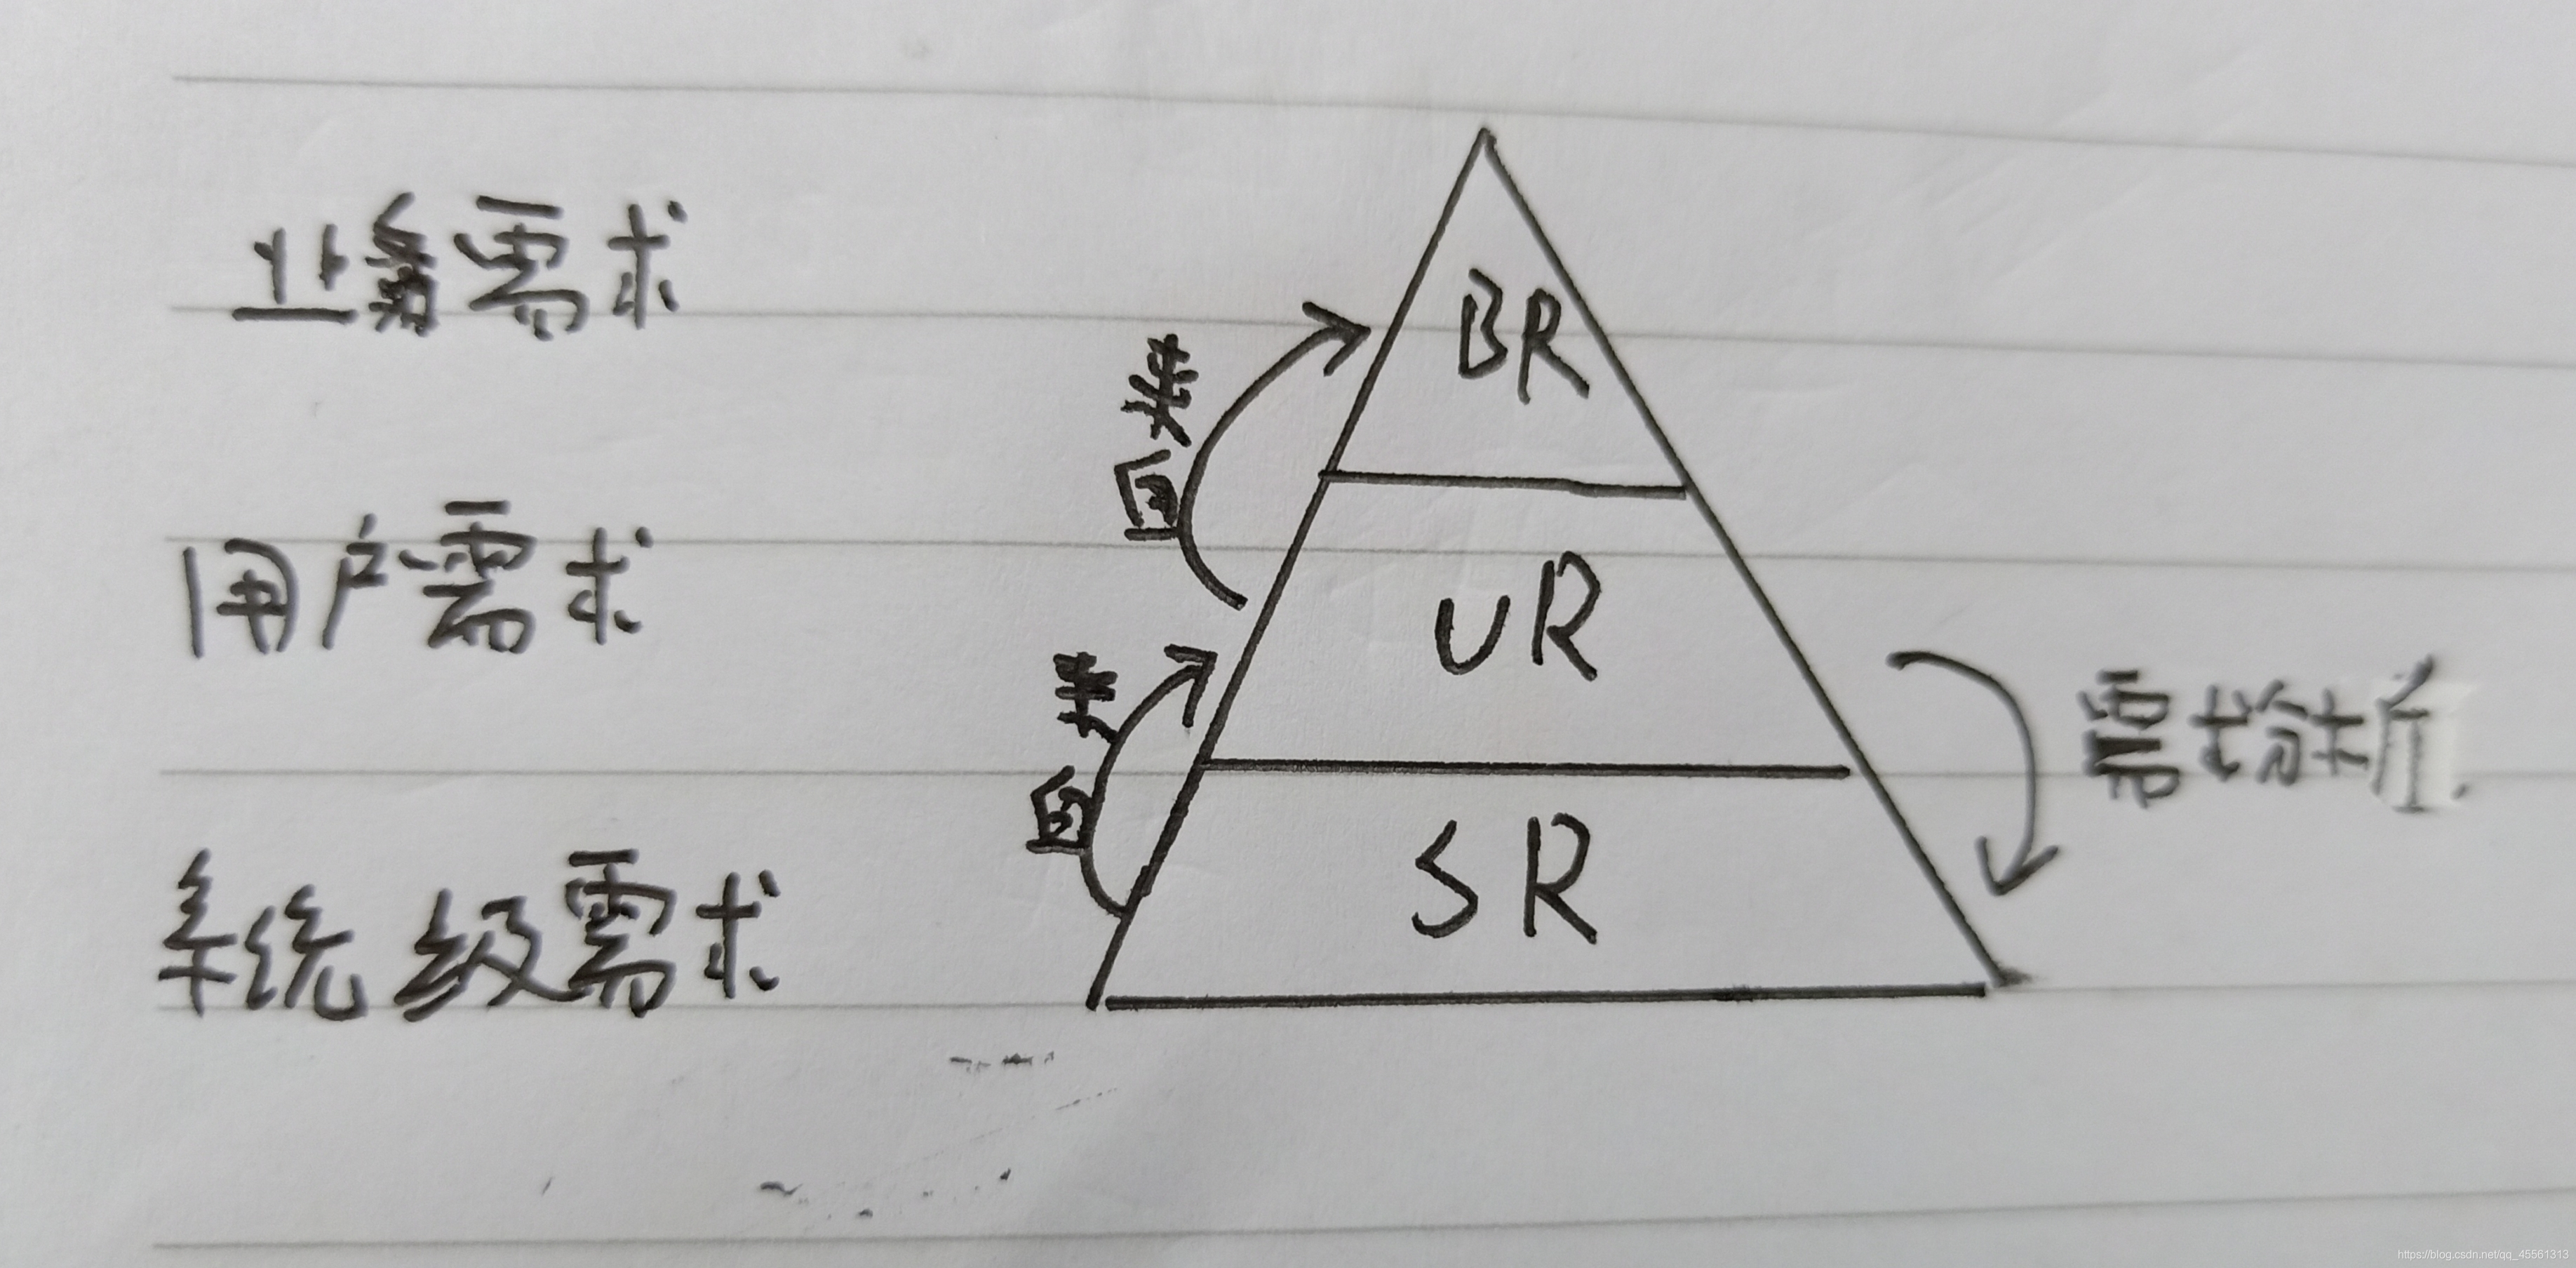 业务需求
BR
来自
用户需求
UR
来自
需求分析
系统级需求
SR
https://blog.csdn.net/qq_45561313